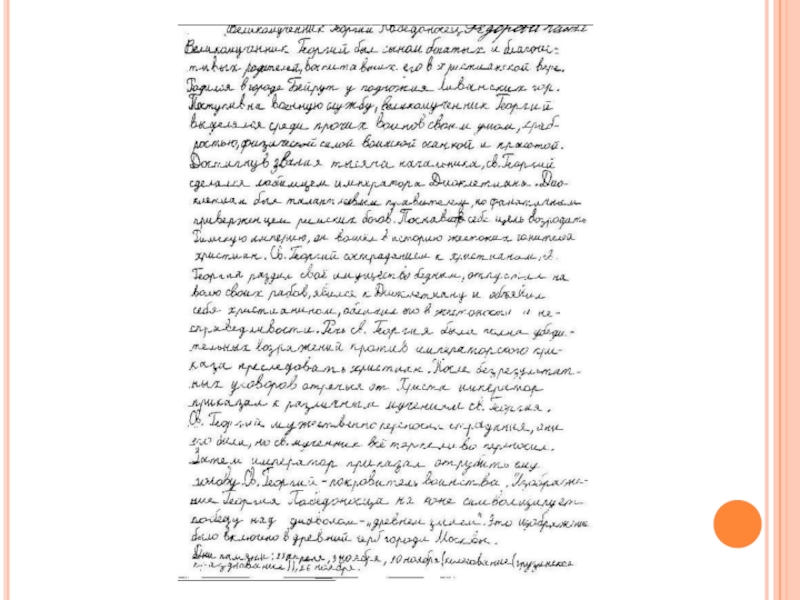 Великомученик Георгий Победоносец
Великомученик Георгий был сыном богатых и благочес-
тивых родителей, воспитавших его в христианской вере.
Родился в городе Бейрут у подножия Ливанских гор.
Поступив на военную службу, великомученик Георгий
выделялся среди прочих воинов своим умом, храб-
ростью, физической силой воинской осанкой и красотой.
Достигнув звания тысяча начальника, св. Георгий
сделался любимцем императора Диоклетиана. Дио-
клетиан был талантливым правителем, но фанатичным
приверженцем римских богов. Поставив себе цель возродить
Римскую империю, он вошёл в историю жестоких гонителей
христиан. Св. Георгий состраданием к христианам.
Георгий раздал своё имущество бедным, отпустил на
волю своих рабов, явился к Диоклетиану и объявил
себя христианином, обличил его в жестокости и не-
справедливости. Речь св. Георгия была полна убеди-
тельных возражений против императорского при-
каза преследовать христиан. После безрезультат-
ных уговоров отречься от Христа император
приказал к различным мучениям св. Георгия.
Св. Георгий мужественно переносил страдания, они
его били, но св. мученик всё терпеливо переносил.
Затем император приказал отрубить ему
голову. Св. Георгий - покровитель воинства. Изображе-
ние Георгия Победоносца на коне символизирует
победу над дьяволом - "древнем змием". Это изображение
было включено в древний герб города Москвы.
Дни памяти: апреля, ноября, 10 ноября (колесование (грузинское
празднование)), 26 ноября.